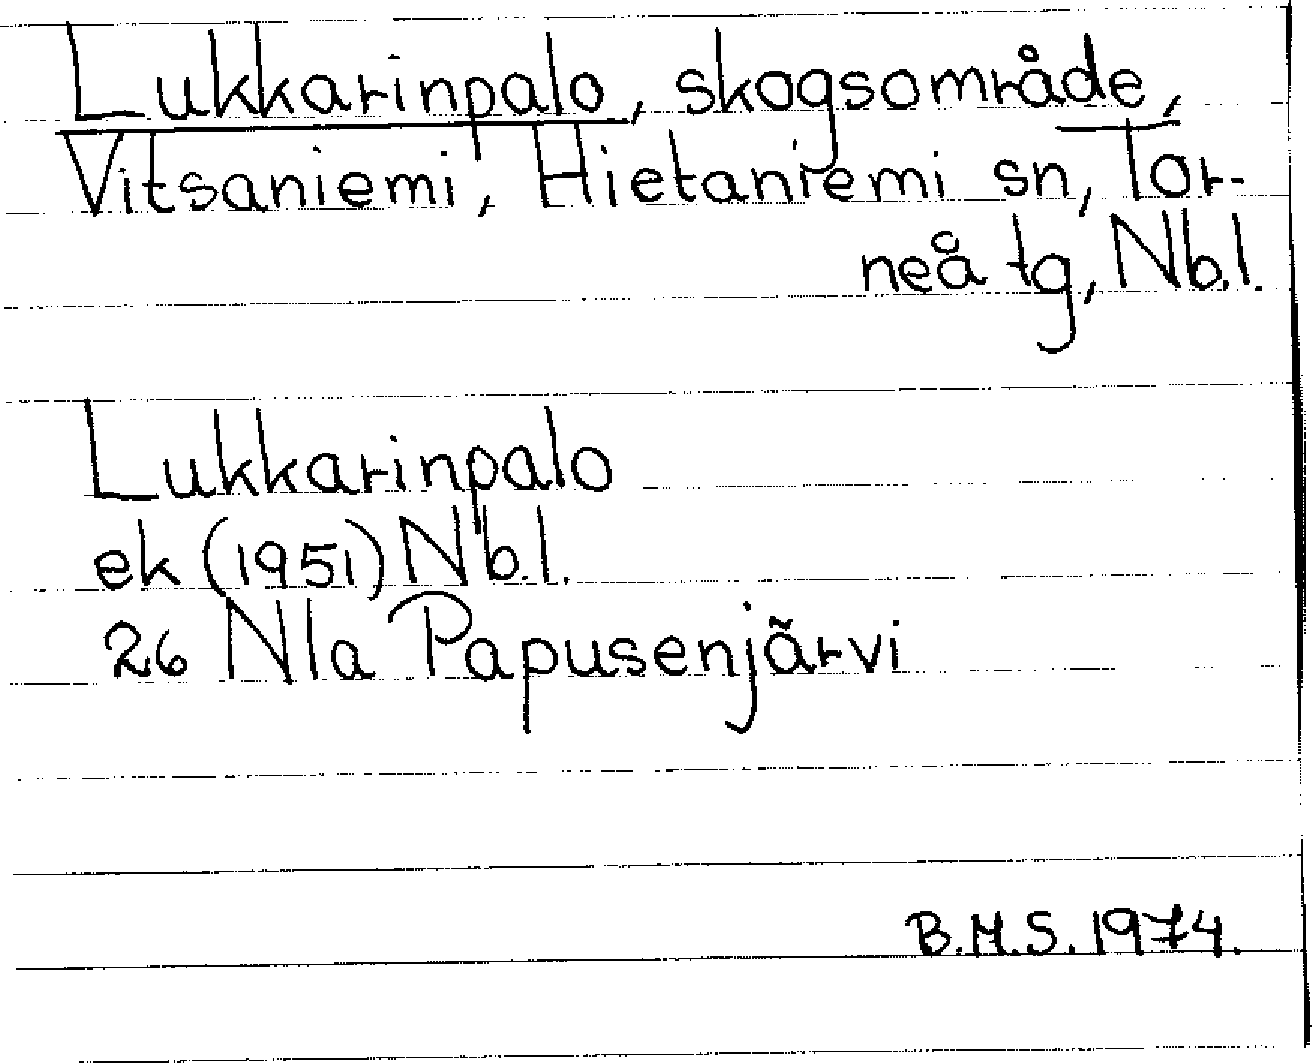 Lukkarinpalo, skogsområde,
Vitsaniemi, Hietaniemi sn, Tor-
neå tg, Nb.l.
Lukkarinpalo
ek (1951) Nb.l.
26 Nla Papusenjärvi
B.M.S. 1974.